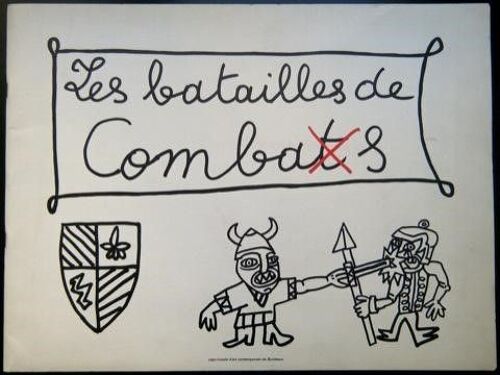 Les batailles de
Combats
capc musée d'art contemporain de Bordeaux